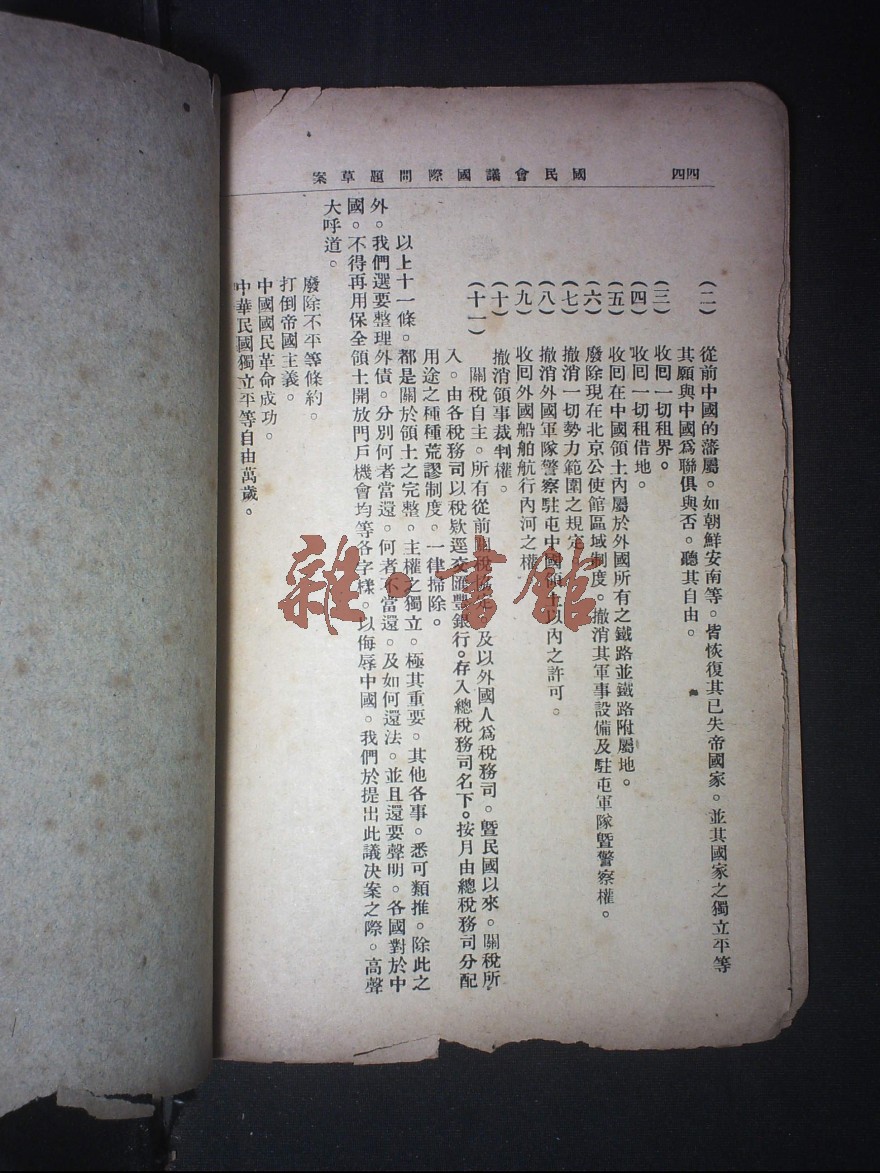 四四
國民會議國際問題草案
（二）從前中國的藩屬。如朝鮮安南等。皆恢復其已失帝國家。並其國家之獨立平等
其願與中國爲聯俱與否。聽其自由。
（三）收回一切租界。
（四）收回一切租借地。
（五）收回在中國領土內屬於外國所有之鐵路並鐵路附屬地。
（六）廢除現在北京公使館區域制度。撤消其軍事設備及駐屯軍隊暨警察權。
（七）撤消一切勢力範圍之規定
（八）撤消外國軍隊警察駐屯中國領土以內之許可。
（九）收回外國船舶航行內河之權
（十）撤消領事裁判權。
（十一）關稅自主。所有從前關稅協定。及以外國人爲稅務司。暨民國以來。關稅所
入。由各稅務司以稅欵逕交匯豐銀行。存入總稅務司名下。按月由總稅務司分配
用途之種種荒謬制度。一律掃除。
以上十一條。都是關於領土之完整。主權之獨立。極其重要。其他各事。悉可類推。除此之
外。我們選要整理外債。分別何者當還。何者不當還。及如何還法。並且還要聲明。各國對於中
國。不得再用保全領土開放門戶機會均等各字樣。以侮辱中國。我們於提出此議决案之際。高聲
大呼道。
廢除不平等條約。
打倒帝國主義。
中國國民革命成功。
中華民國獨立平等自由萬歲。
雜·書館